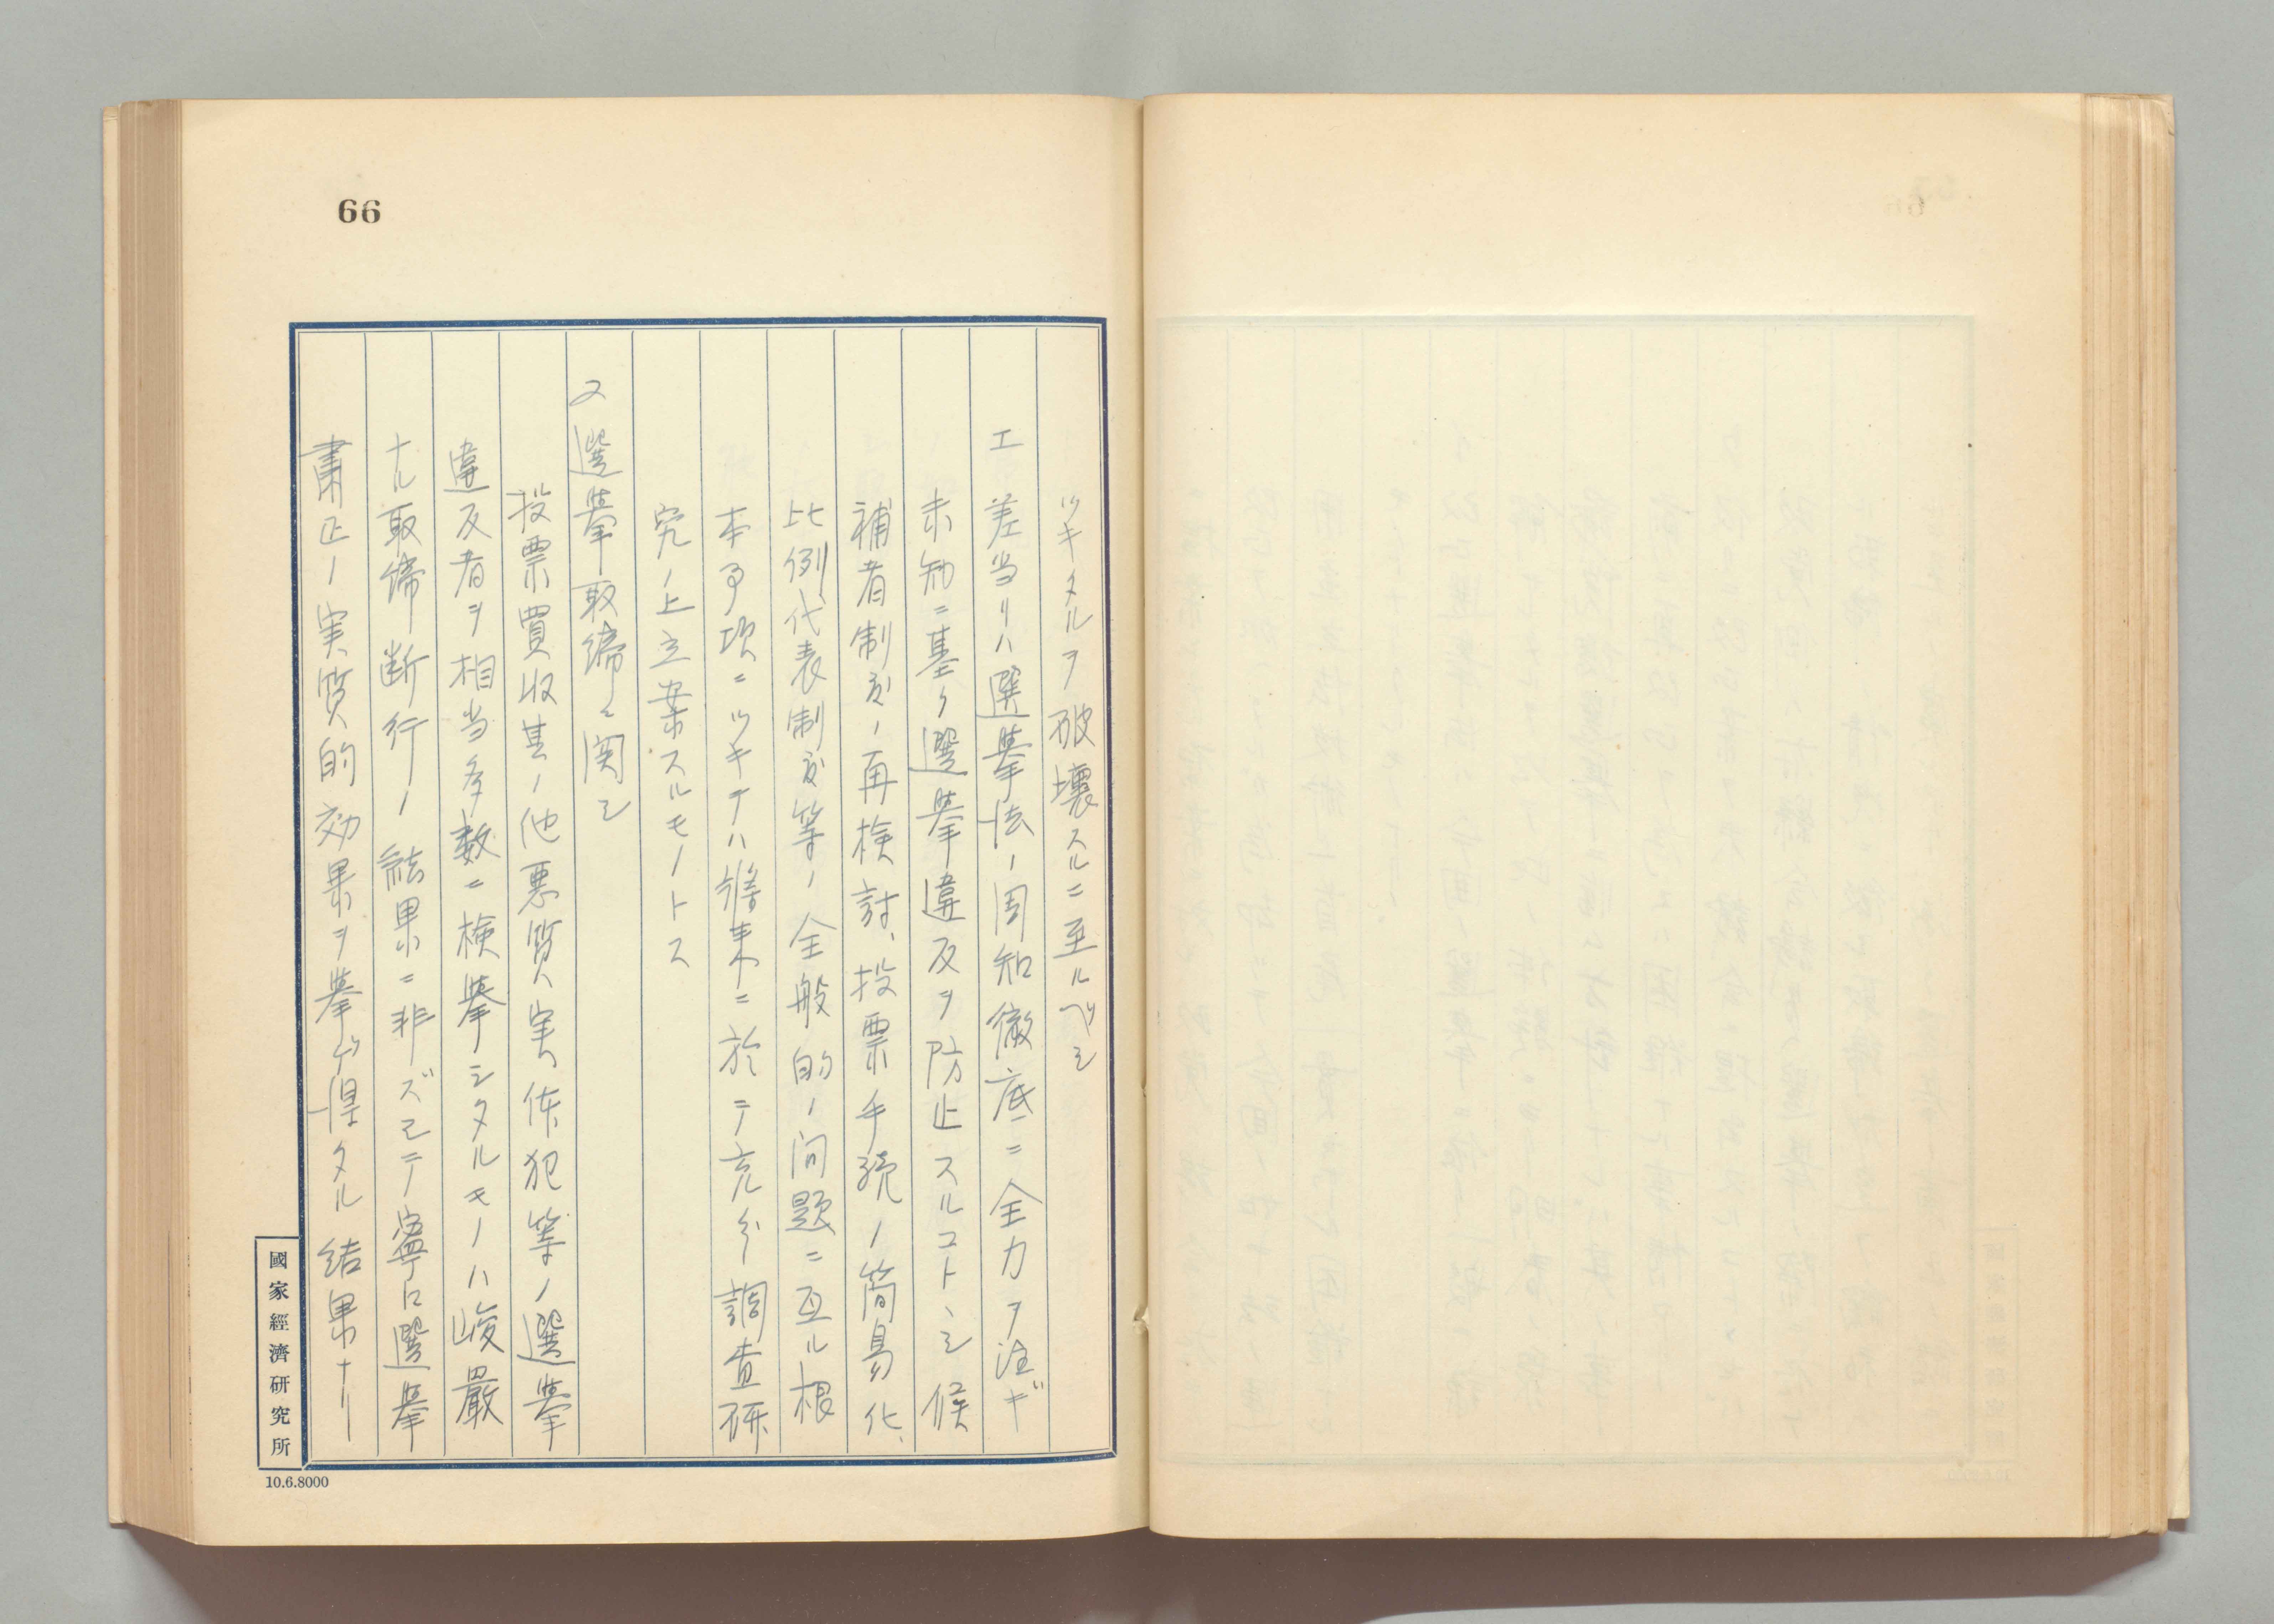 66
ツキタルヲ破壊スルニ至ルベシ
エ 差当リハ選挙法ノ周知徹底ニ全力ヲ注ギ
未知ニ基ク選挙違反ヲ防止スルコトヽシ候
補者制度ノ再検討、投票手続ノ簡易化、
比例代表制度等ノ全般的ノ问題ニ亙ル根
本事項ニツキテハ將来ニ於テ充分調査研
究ノ上立案スルモノトス
2 選挙取締ニ関シ
投票買収其ノ他悪質実体犯等ノ選挙
違反者ヲ相当多数ニ検挙シタルモノハ峻厳
ナル取締断行ノ結果ニ非ズシテ寧ロ選挙
粛正ノ実質的効果ヲ挙ゲ得タル結果ナリ
國家經濟研究所
10.6.8000